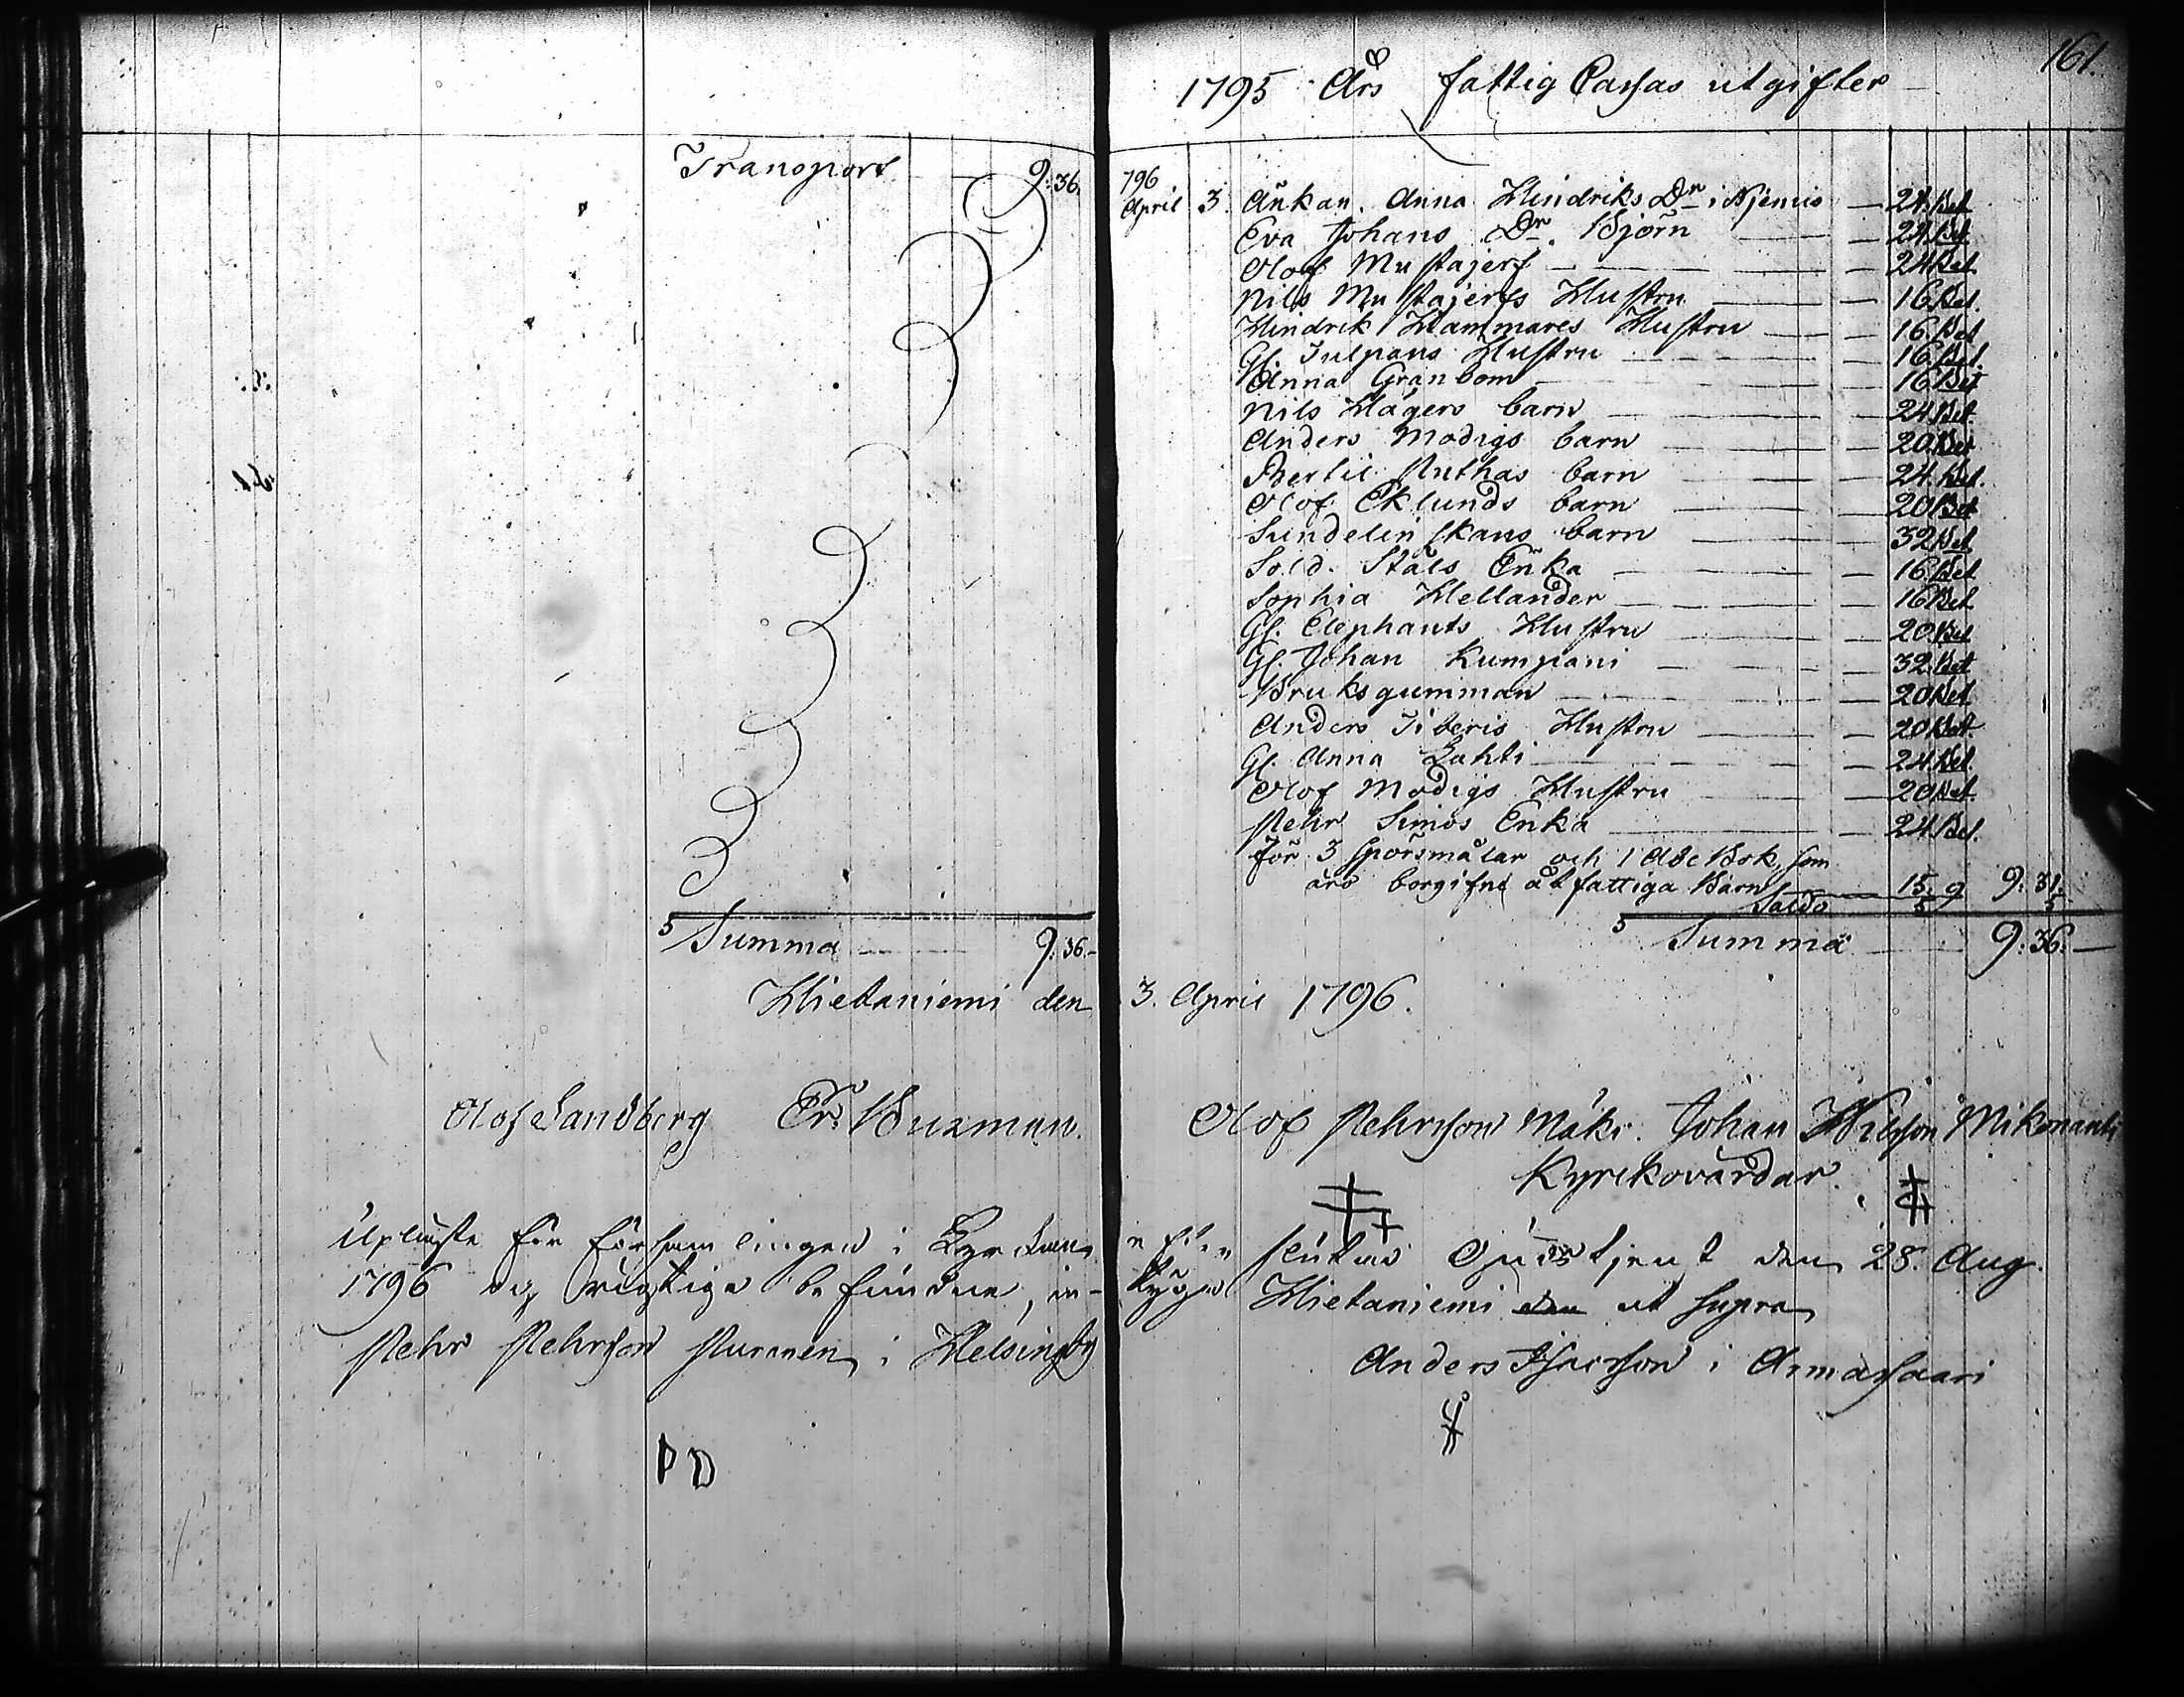 161.
1795 Års fattig Cassas utgifter
Transport 9:36.
796
April 3. Änkan. Anna Hindriks Dr i Njemis — 24. Bet
Eva Johans Dr. Björn — 24. Bet.
Olof Mustajerf — 24 Bet.
Nils Mustajerfs Hustru — 16 Bet.
Hindrik Hammares Hustru — 16. Bet
Gl. Julpans Hustru — 16. Bet.
Anna Granbom — 16. Bet
Nils Hägers barn — 24 Bet.
Anders Modigs barn — 20. Bet
Bertil Ruthas barn — 24. Bet.
Olof Eklunds barn — 20 Bet
Sundelinskans barn — 32 Bet
Sold. Ståls Enka — 16. Bet
Sophia Hellander — 16 Bet
Gl. Elephants Hustru — 20. Bet
Gl. Johan Kumpani — 32. Bet
Bruksgumman — 20 Bet
Anders Iiberis Hustru — 20 Bet
Gl. Anna Lahti — 24. Bet.
Olof Modigs Hustru — 20 Bet.
Pehr Simos Enka — 24. Bet.
För 3 spörsmålar och 1 Abc Bok, som
äro borgifne åt fattiga Barn — 15. 9 9:31.
Saldo 5 5
Summa — 9:36.-
Summa — 9:36.—
Hietaniemi den 3. April 1796.
Olof Sandberg Er. Burman.
Olof Pehrsson Mäki. Johan Nilsson Mikonanti
Kyrkovärdar.
Upläste för församlingen i slutad Gudstjenst den 28. Aug.
1796 och riktige befundne, in- Hietaniemi den ut supra
Pehr Pehrsson Purainen i Helsingby
Anders Isacsson i Armassaari
P D